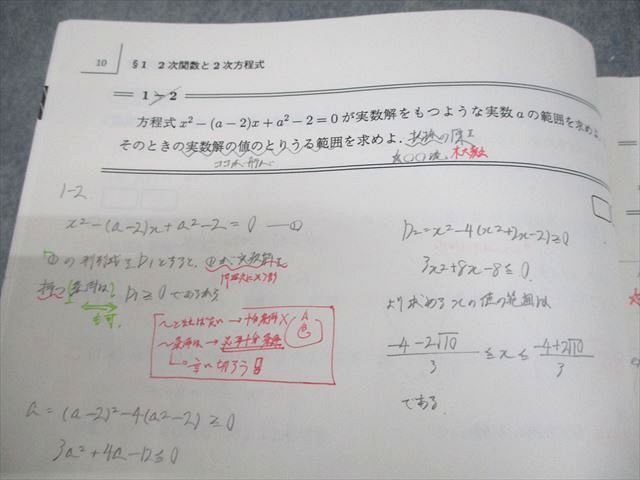 10
§1 2次関数と2次方程式
1-2
方程式 x²-(a-2)x+a²-2=0 が実数解をもつような実数 a の範囲を求めよ.
そのときの実数解の値のとりうる範囲を求めよ.
1-2
x²-(a-2)x+a²-2=0 ―①
①の判別式をD₁とすると、①が実数解を
持つ条件は、D₁≧0であるから
〜条件は → 必要十分条件
言い切ろう!!
A
B
=(a-2)²-4(a²-2)≧0
3a²+4a-12≦0
D₂=x²-4(x²+2x-2)≧0
3x²+8x-8≦0
より求めるxの値の範囲は
(-4-2√10)/3 ≦ x ≦ (-4+2√10)/3
である